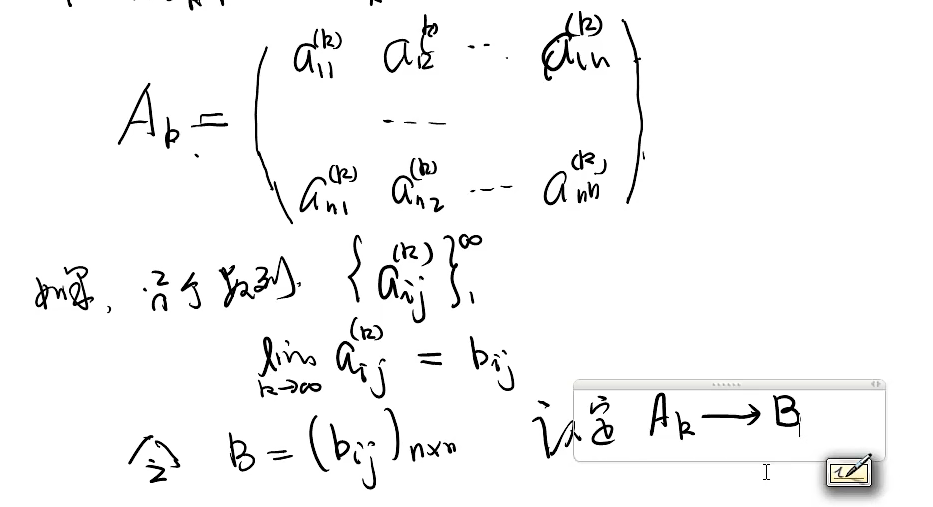 A_k = ( a_{11}^{(k)} a_{12}^{k} ... a_{1n}^{(k)}
---
a_{n1}^{(k)} a_{n2}^{(k)} --- a_{nn}^{(k)} )
如果, n² 个数列 { a_{ij}^{(k)} }_1^∞
lim_{k→∞} a_{ij}^{(k)} = b_{ij}
令 B = (b_{ij})_{n×n} 认定 A_k → B